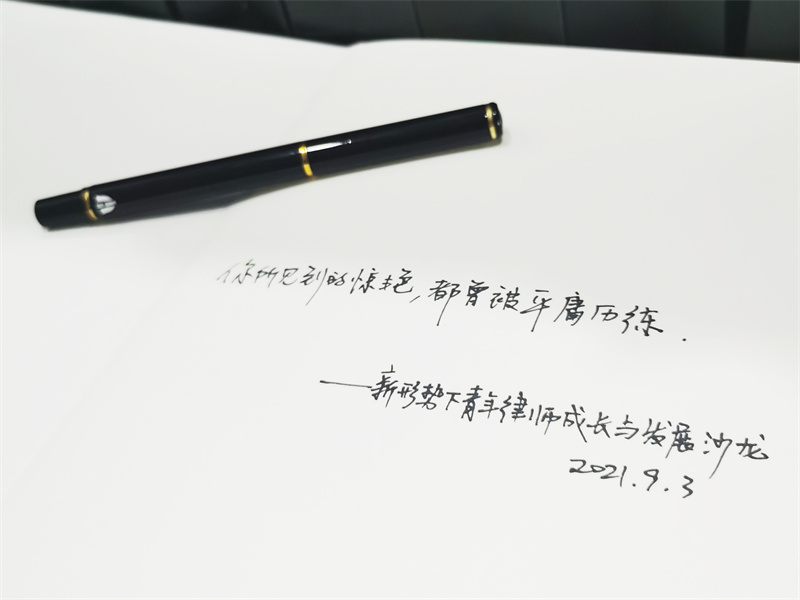 你所见到的惊艳,都曾被平庸历练.
——新形势下青年律师成长与发展沙龙
2021.9.3